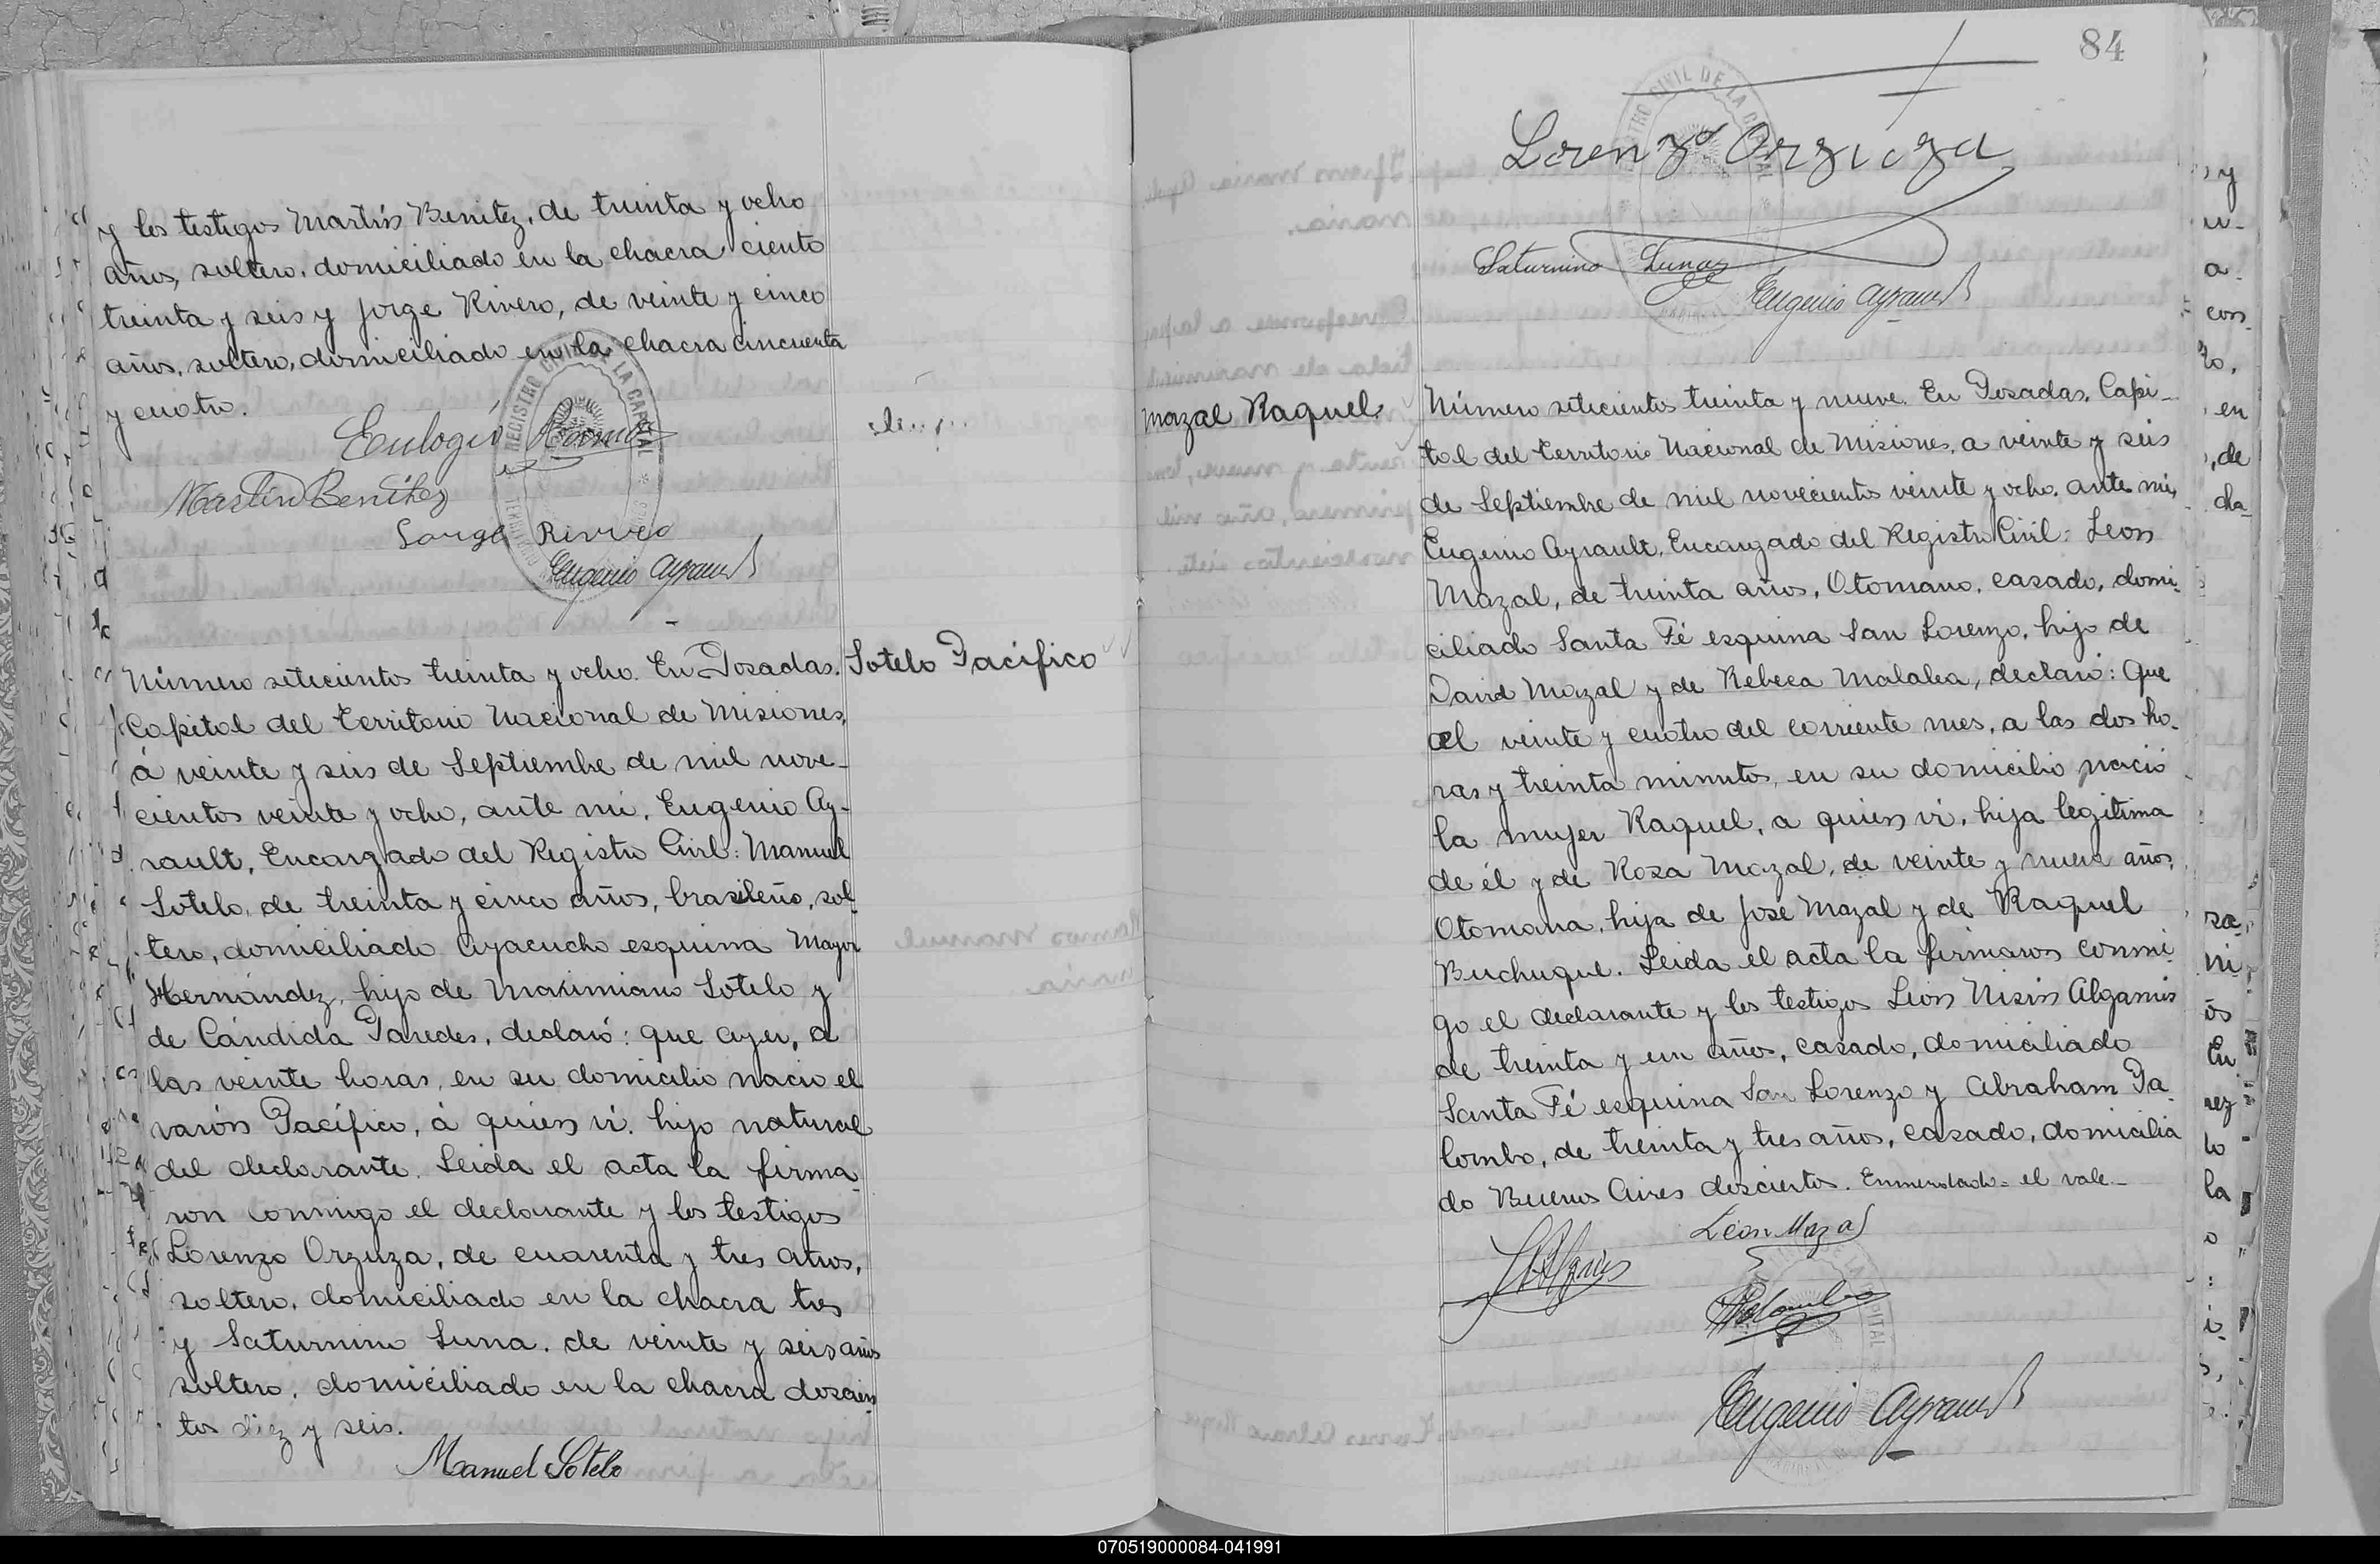 y los testigos Martín Benitez, de treinta y ocho
años, soltero, domiciliado en la chacra ciento
treinta y seis y Jorge Rivero, de veinte y cinco
años, soltero, domiciliado en la chacra cincuenta
y cuatro.
Eulogio
Martín Benítez
Jorge Rivero
Eugenio Ayrault
Sotelo Pacífico
Número setecientos treinta y ocho. En Posadas,
Capital del Territorio Nacional de Misiones,
á veinte y seis de Septiembre de mil nove-
cientos veinte y ocho, ante mi, Eugenio Ay-
rault, Encargado del Registro Civil: Manuel
Sotelo, de treinta y cinco años, brasileño, sol-
tero, domiciliado Ayacucho esquina Mayor
Hernández, hijo de Maximiano Sotelo y
de Cándida Paredes, declaró: que ayer, a
las veinte horas, en su domicilio nació el
varón Pacífico, á quien ví, hijo natural
del declarante. Leida el acta la firma-
ron conmigo el declarante y los testigos
Lorenzo Orzuza, de cuarenta y tres años,
soltero, domiciliado en la chacra tres
y Saturnino Luna, de veinte y seis años
soltero, domiciliado en la chacra doscien
tos diez y seis.
Manuel Sotelo
84
Lorenzo
Saturnino Luna
Eugenio Ayrault
Mazal Raquel
Número setecientos treinta y nueve. En Posadas, Capi-
tal del Territorio Nacional de Misiones, a veinte y seis
de Septiembre de mil novecientos veinte y ocho, ante mi,
Eugenio Ayrault, Encargado del Registro Civil: Leon
Mazal, de treinta años, Otomano, casado, domi-
ciliado Santa Fé esquina San Lorenzo, hijo de
David Mazal y de Rebeca Malalea, declaró: Que
el veinte y cuatro del corriente mes, a las dos ho-
ras y treinta minutos, en su domicilio nació
la mujer Raquel, a quien vi, hija legítima
de él y de Rosa Mazal, de veinte y nueve años,
Otomana, hija de José Mazal y de Raquel
Buchuque. Leida el acta la firmaron conmi-
go el declarante y los testigos Leon Nisin Algamis
de treinta y un años, casado, domiciliado
Santa Fé esquina San Lorenzo y Abraham Pa-
lombo, de treinta y tres años, casado, domicilia
do Buenos Aires doscientos. Enmendado = el vale.
León Mazal
Eugenio Ayrault
070519000084-041991